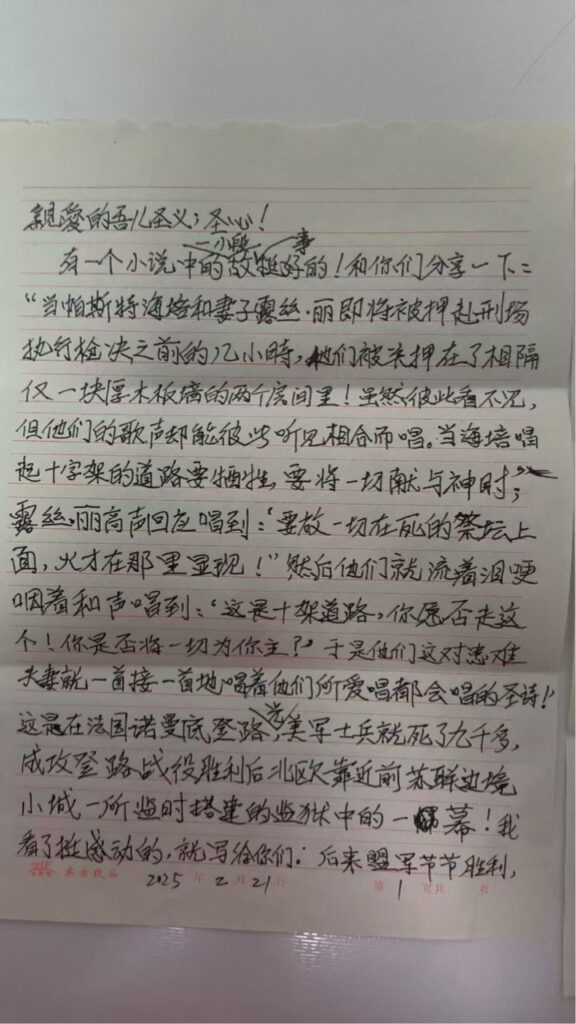 親愛的吾儿圣义；圣心！
有一个小说中的一小段故事挺好的！和你们分享一下：
“当帕斯特海培和妻子露丝·丽即将被押赴刑场
执行枪决之前的几小時，他们被关押在了相隔
仅一块厚木板墙的两个房间里！虽然彼此看不见，
但他们的歌声却能彼此听见相合而唱。当海培唱
起十字架的道路要牺牲，要将一切献与神时”；
露丝·丽高声回应唱到：“要放一切在死的祭坛上
面，火才在那里显现！”然后他们就流着泪哽
咽着和声唱到：“这是十架道路，你愿否走这
个！你是否将一切为你主？”于是他们这对患难
夫妻就一首接一首地唱着他们所爱唱都会唱的圣诗！”
这是在法国诺曼底登路，美军士兵就死了九千多，
成攻登路战役胜利后北欧靠近前苏联边境
小城一所监时搭建的监狱中的一幕！我
看了挺感动的，就写给你们。后来盟军节节胜利，
东方纸品 2025年2月21日 第1页共 页